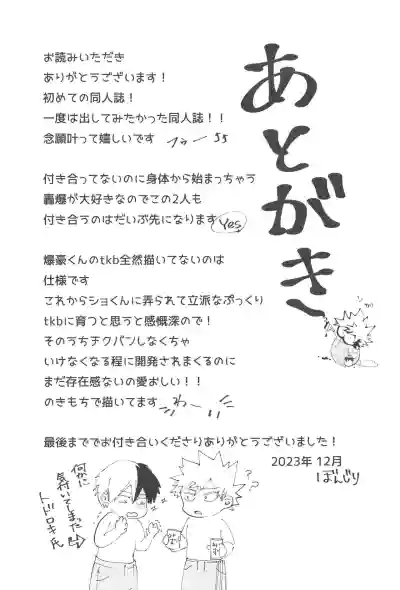 あとがき
お読みいただき
ありがとうございます！
初めての同人誌！
一度は出してみたかった同人誌！！
念願叶って嬉しいです
付き合ってないのに身体から始まっちゃう
轟爆が大好きなのでこの2人も
付き合うのはだいぶ先になります Yes
爆豪くんのtkb全然描いてないのは
仕様です
これからショくんに弄られて立派なぷっくり
tkbに育つと思うと感慨深ので！
そのうち
しなくちゃ
いけなくなる程に開発されまくるのに
まだ存在感ないの愛おしい！！
のきもちで描いてます
最後まででお付き合いくださりありがとうございました！
2023年 12月
ぼんじり
何かに
気付いてしまった
トドロキ氏
??